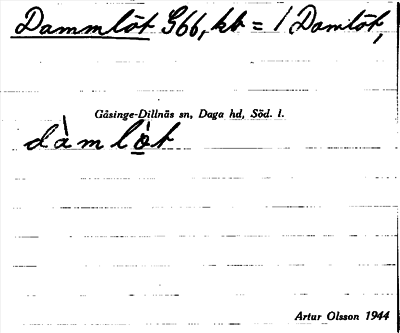 Dammlöt G66, kb = 1 Damlöt,
Gåsinge-Dillnäs sn, Daga hd, Söd. l.
dàmlö̀t
Artur Olsson 1944